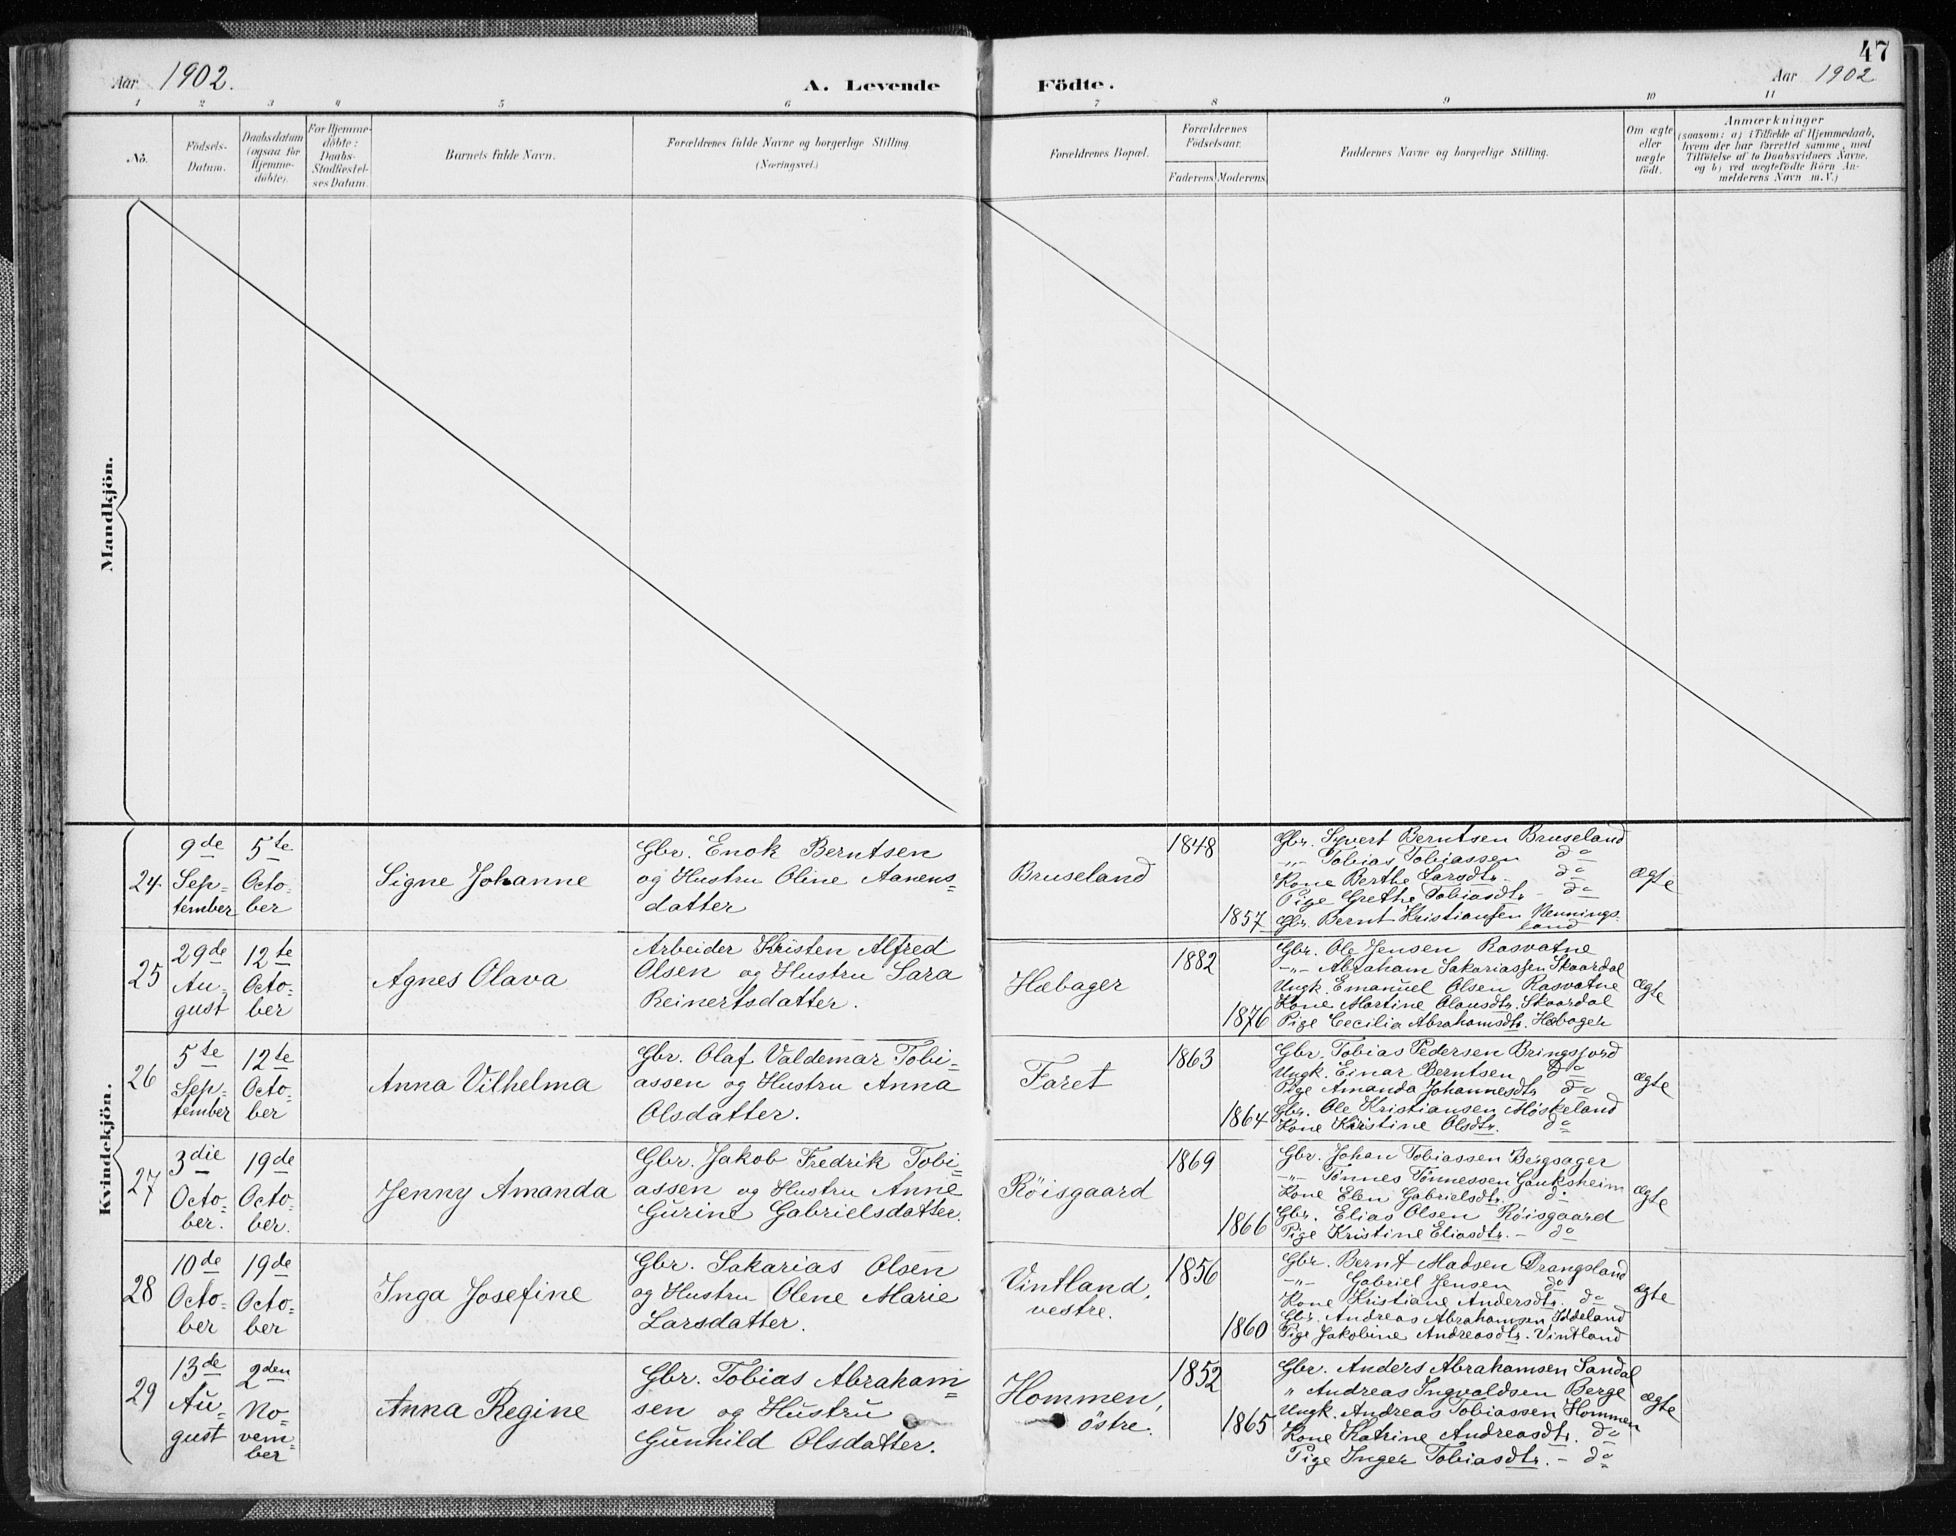 47
Aar 1902.
A. Levende
Födte.
Aar 1902
1 2 3 4 5 6 7 8 9 10 11
No.
Födsels-
Datum.
Daabsdatum
(ogsaa for
Hjemme-
döbte).
For Hjemme-
döbte:
Daabs-
Stadfæstel-
ses Datum.
Barnets fulde Navn.
Forældrenes fulde Navne og borgerlige Stilling.
(Næringsvei.)
Forældrenes Bopæl.
Forældrenes
Födselsaar.
Faderens. Moderens.
Faddernes Navne og borgerlige Stilling.
Om ægte
eller
uægte
födt.
Anmærkninger
(saasom: a) i Tilfælde af Hjemmedaab,
hvem der har forrettet samme, med
Tilföielse af to Daabsvidners Navne,
og b) ved uægtefödte Börn An-
melderens Navn m. V.)
Mandkjön.
Kvindekjön.
24.
9de
Sep-
tember
5te
Octo-
ber
Signe Johanne
Gbr. Enok Berntsen
og Hustru Oline Aanens-
datter
Bruseland
1848
1857
Gbr. Syvert Berntsen Bruseland
-"- Tobias Tobiassen do
Kone Berthe Larsdtr. do
Pige Grethe Tobiasdtr - do
Gbr. Bernt Kristiansen Nennings-
land
ægte
25
29de
Au-
gust
12te
Octo-
ber
Agnes Olava
Arbeider Kristen Alfred
Olsen og Hustru Sara
Reinertsdatter.
Hæbager
1882
1876
Gbr. Ole Jensen Rasvatne
-"- Abraham Sakariassen Skaardal
Ungk. Emanuel Olsen Rasvatne
Kone Martine Olausdtr. Skaardal
Pige Cecilia Abrahamsdtr. Hæbager
ægte
26
5te
Sep-
tember
12te
Octo-
ber
Anna Vilhelma
Gbr. Olaf Valdemar Tobi-
assen og Hustru Anna
Olsdatter.
Faret
1863
1864
Gbr. Tobias Pedersen Bringsjord
Ungk. Einar Berntsen do
Pige Amanda Johannesdtr do
Gbr. Ole Kristiansen Møskeland
Kone Kristine Olsdtr. do
ægte
27
3die
Octo-
ber.
19de
Octo-
ber.
Jenny Amanda
Gbr. Jakob Fredrik Tobi-
assen og Hustru Anne
Gurine Gabrielsdatter.
Røisgaard
1869
1866
Gbr. Johan Tobiassen Bergsager
-"- Tönnes Tönnessen Gauksheim
Kone Elen Gabrielsdtr. do
Gbr. Elias Olsen Röisgaard
Pige Kristine Eliasdtr. - do
ægte
28
10de
Octo-
ber
19de
Octo-
ber
Inga Josefine
Gbr. Sakarias Olsen
og Hustru Olene Marie
Larsdatter.
Vintland,
vestre.
1856
1860
Gbr. Bernt Madsen Drangsland
-"- Gabriel Jensen do
Kone Kristiane Andersdtr. do
Gbr. Andreas Abrahamsen Iddeland
Pige Jakobine Andreasdtr. Vintland
ægte
29
13de
Au-
gust
2den
No-
vem-
ber
Anna Regine
Gbr. Tobias Abraham-
sen og Hustru
Gunhild Olsdatter.
Hommen,
östre.
1852
1865
Gbr. Anders Abrahamsen Sandal
" Andreas Ingvaldsen Berge
Ungk. Andreas Tobiassen Hommen
Kone Katrine Andreasdtr. do
Pige Inger Tobiasdtr. - do
ægte